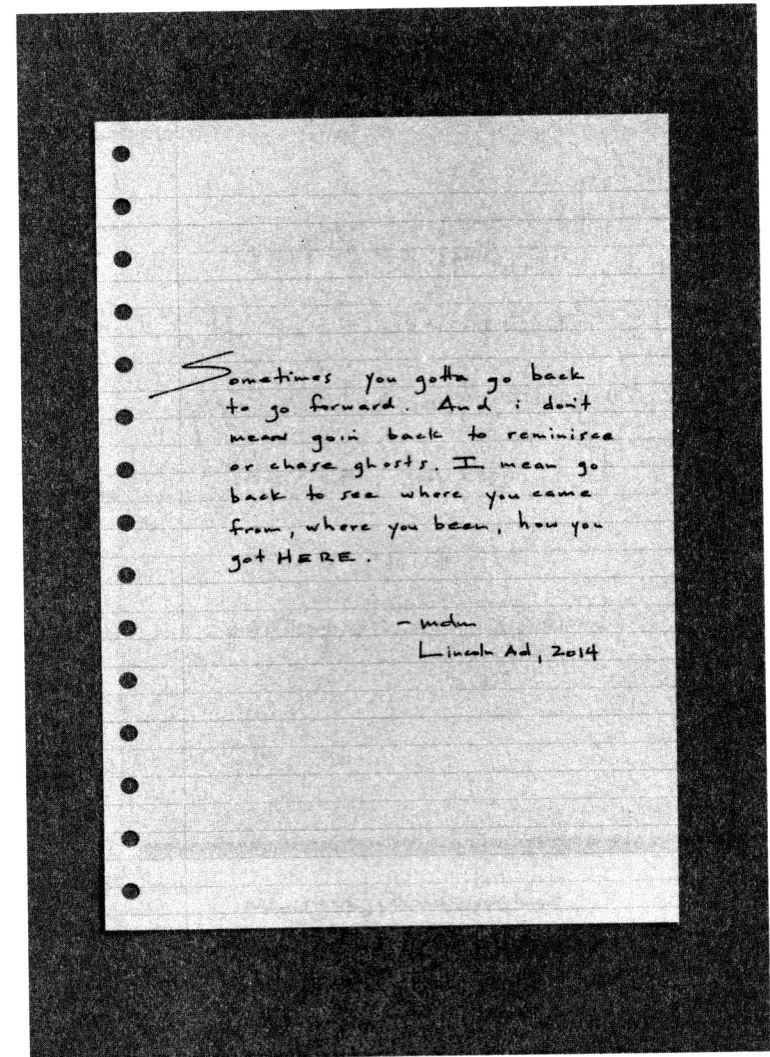 Sometimes you gotta go back
to go forward. And i don't
mean goin back to reminisce
or chase ghosts. I mean go
back to see where you came
from, where you been, how you
got HERE.
- mdm
Lincoln Ad, 2014